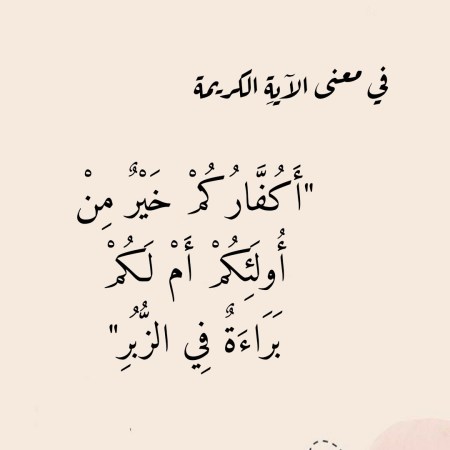 في معنى الآيةِ الكريمة
"أَكُفَّارُكُمْ خَيْرٌ مِنْ
أُولَئِكُمْ أَمْ لَكُمْ
بَرَاءَةٌ فِي الزُّبُرِ"